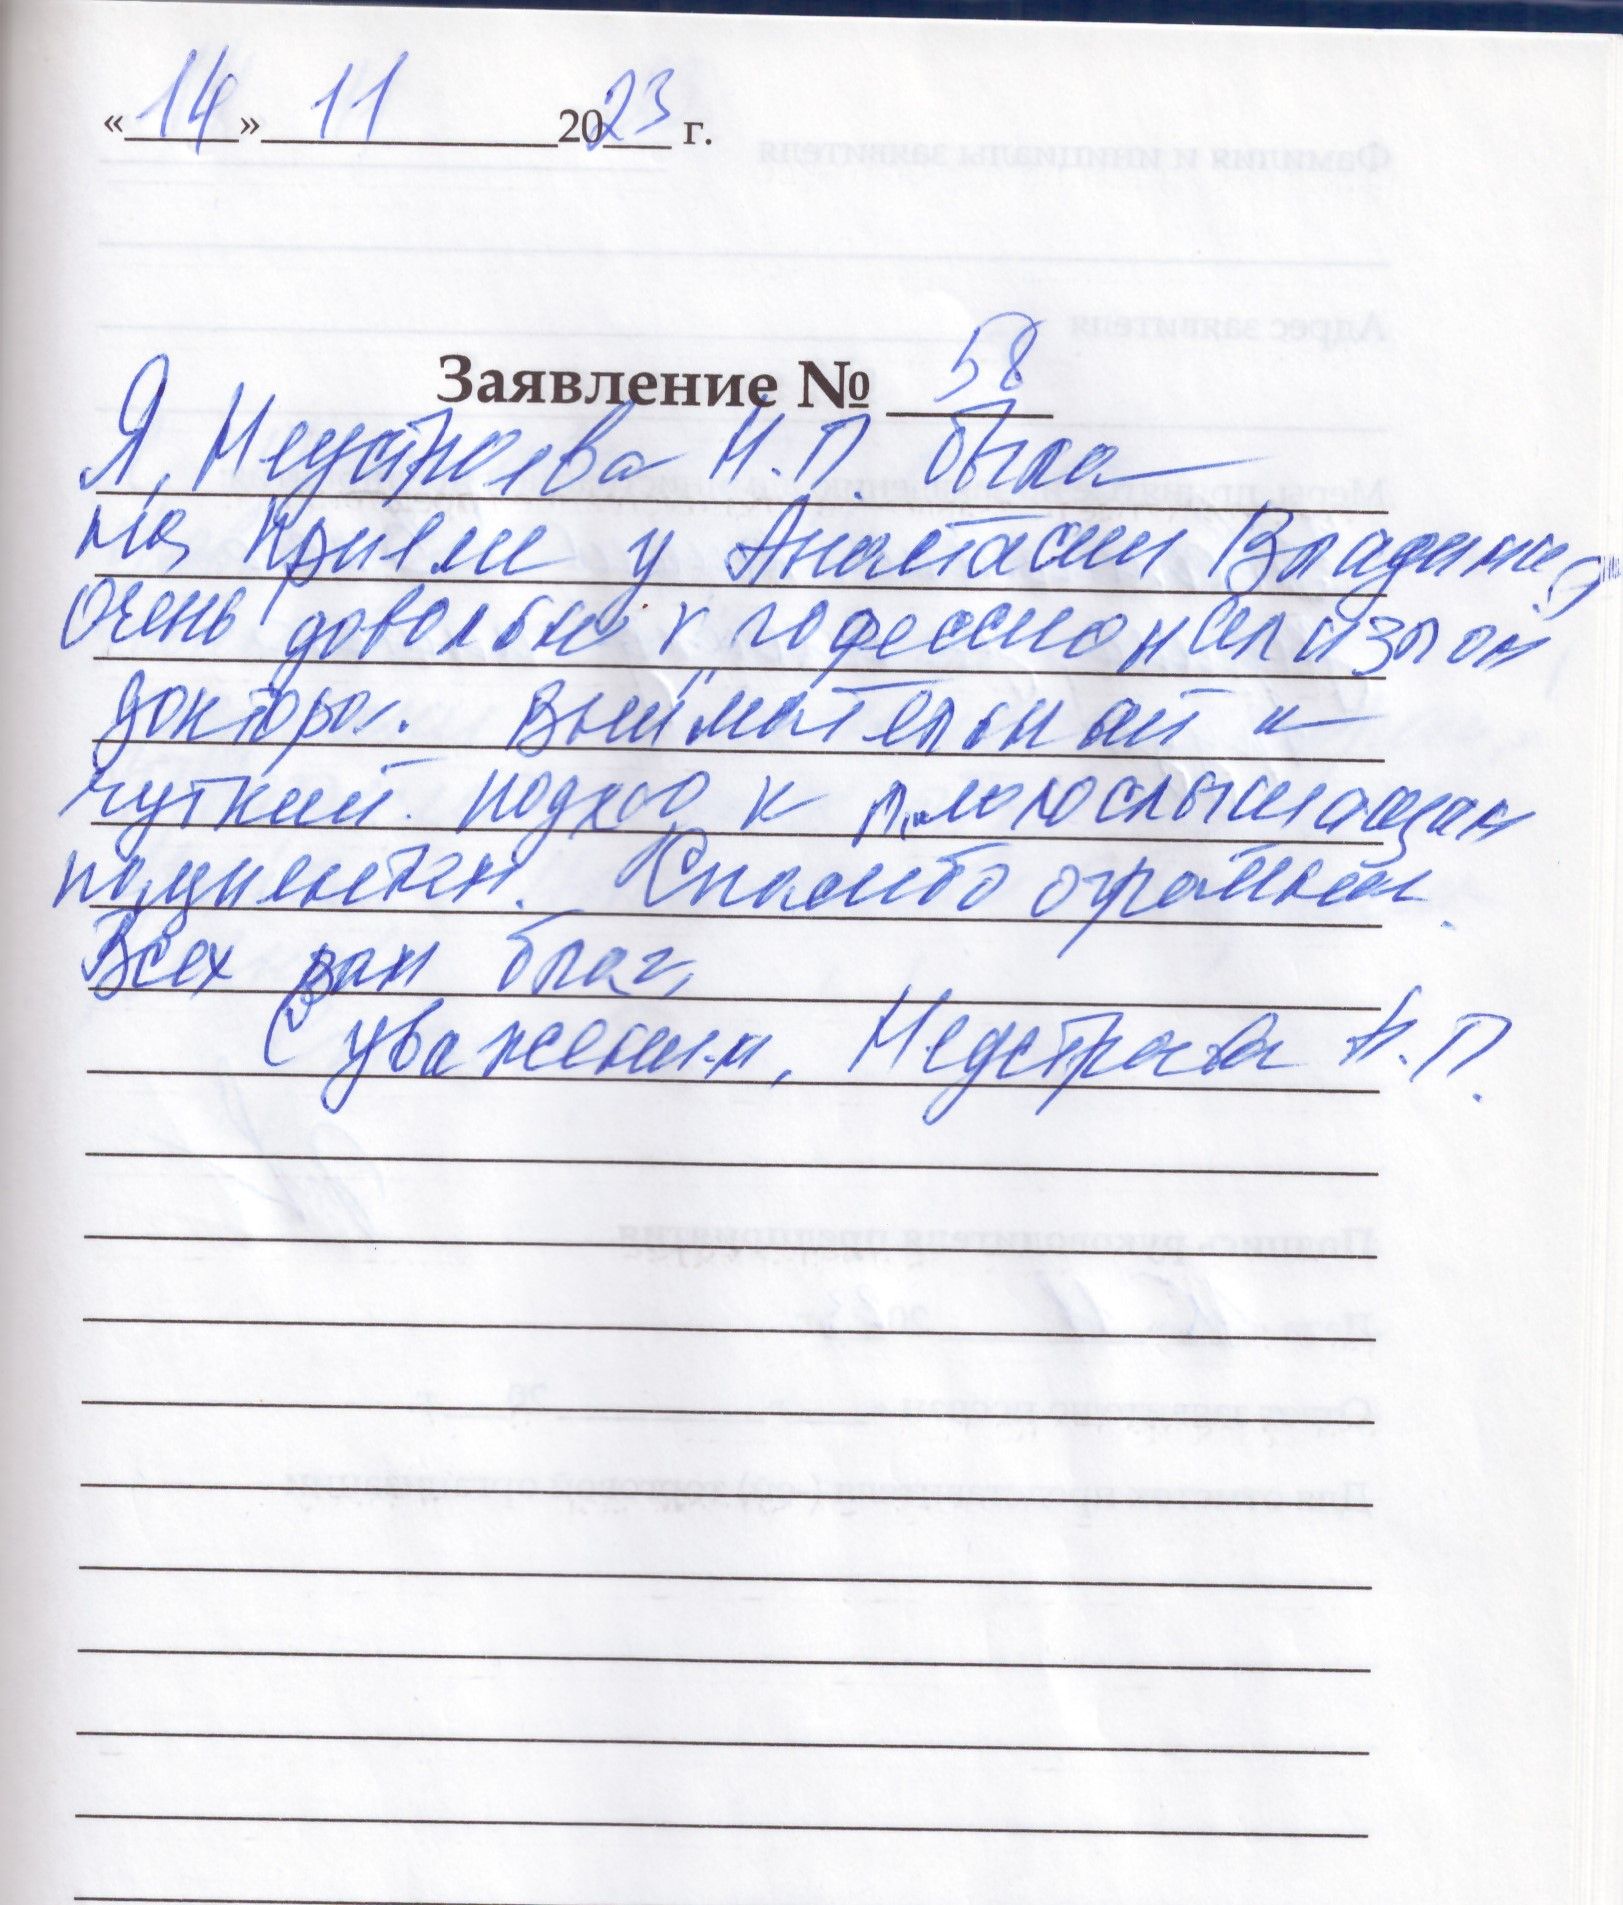 «14» 11 2023 г.
Заявление № 58
Я, Неустроева Н.П. была
на приеме у Анастасии Владими
очень довольна профессионализмом
доктора. Внимательный и
чуткий подход к плохослышащим
пациентам. Спасибо огромное.
Всех вам благ,
С уважением, Неустроева Н.П.